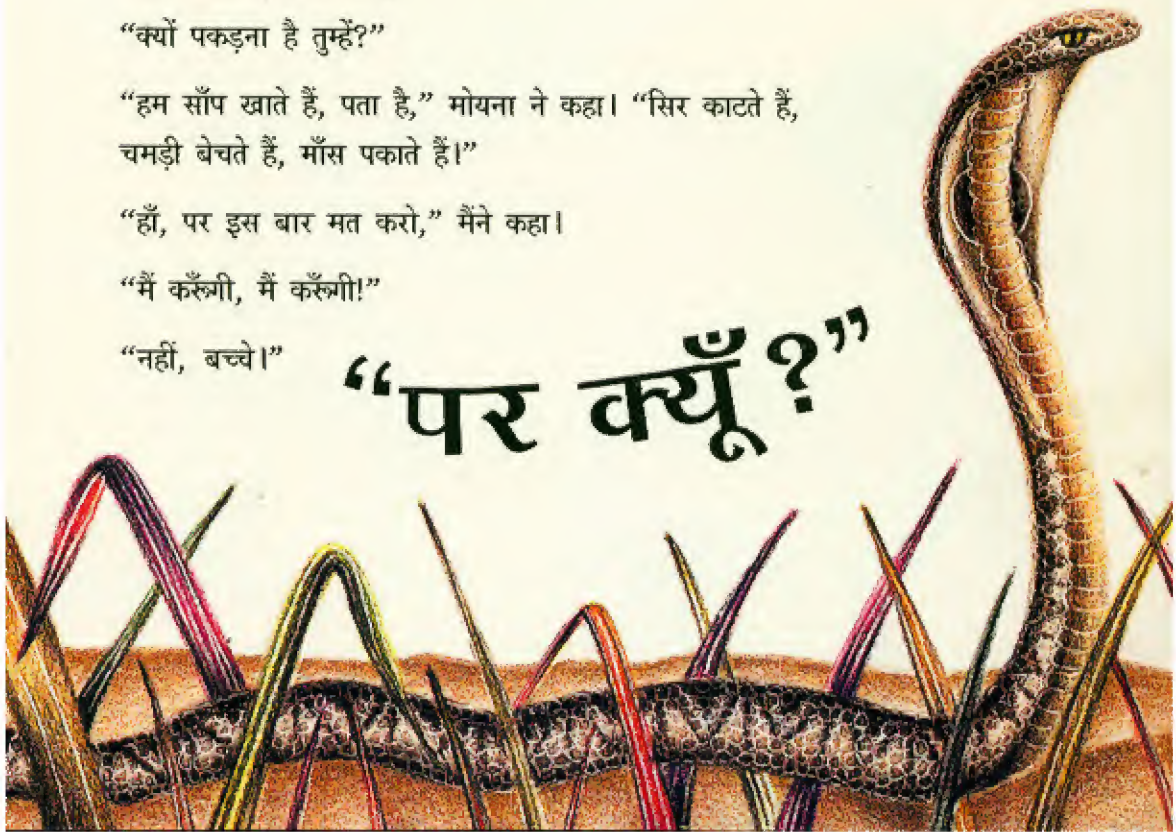 “क्यों पकड़ना है तुम्हें?”
“हम साँप खाते हैं, पता है,” मोयना ने कहा। “सिर काटते हैं,
चमड़ी बेचते हैं, माँस पकाते हैं।”
“हाँ, पर इस बार मत करो,” मैंने कहा।
“मैं करूँगी, मैं करूँगी!”
“नहीं, बच्चे।”
“पर क्यूँ?”